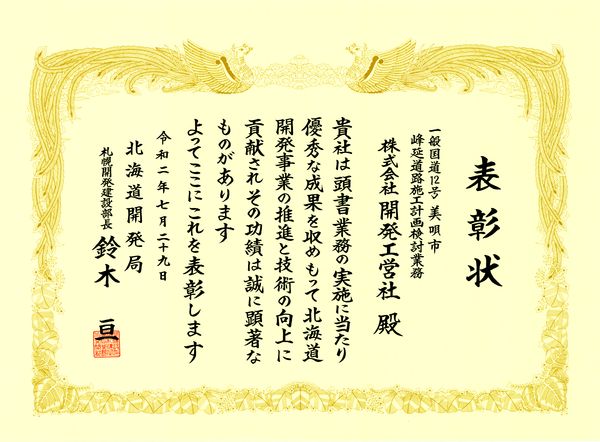 表彰状
一般国道12号 美唄市
峰延道路施工計画検討業務
株式会社 開発工営社 殿
貴社は頭書業務の実施に当たり
優秀な成果を収めもって北海道
開発事業の推進と技術の向上に
貢献されその功績は誠に顕著な
ものがあります
よってここにこれを表彰します
令和二年七月二十九日
北海道開発局
札幌開発建設部長 鈴木 亘